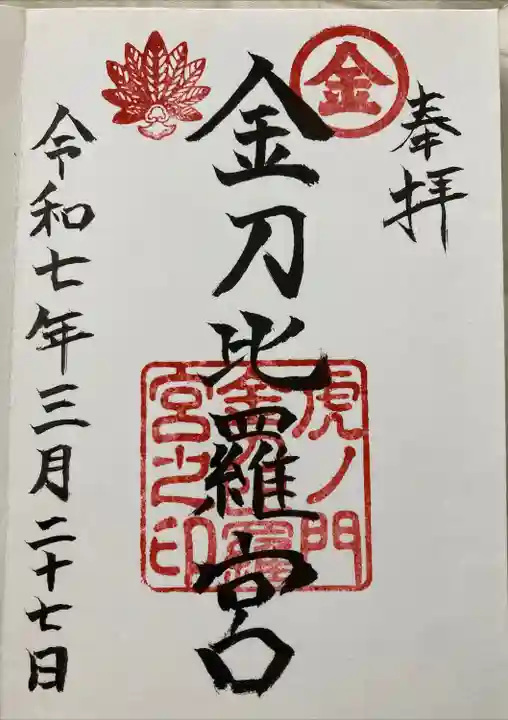 奉拝
金
金刀比羅宮
虎ノ門
金刀比羅
宮之印
令和七年三月二十七日